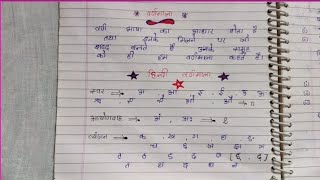 वर्णमाला
वर्ण भाषा का आधार होता है
तथा इनके मिलने पर जो
शब्द बनते हैं उनके समूह
को ही हम वर्णमाला कहते हैं।
हिन्दी वर्णमाला
स्वर → अ आ इ ई उ ऊ
ऋ ए ऐ ओ औ
अयोगवाह → अं, अः
व्यंजन → क ख ग घ ङ
च छ ज झ ञ
ट ठ ड ढ ण (ड़, ढ़)
त थ द ध न